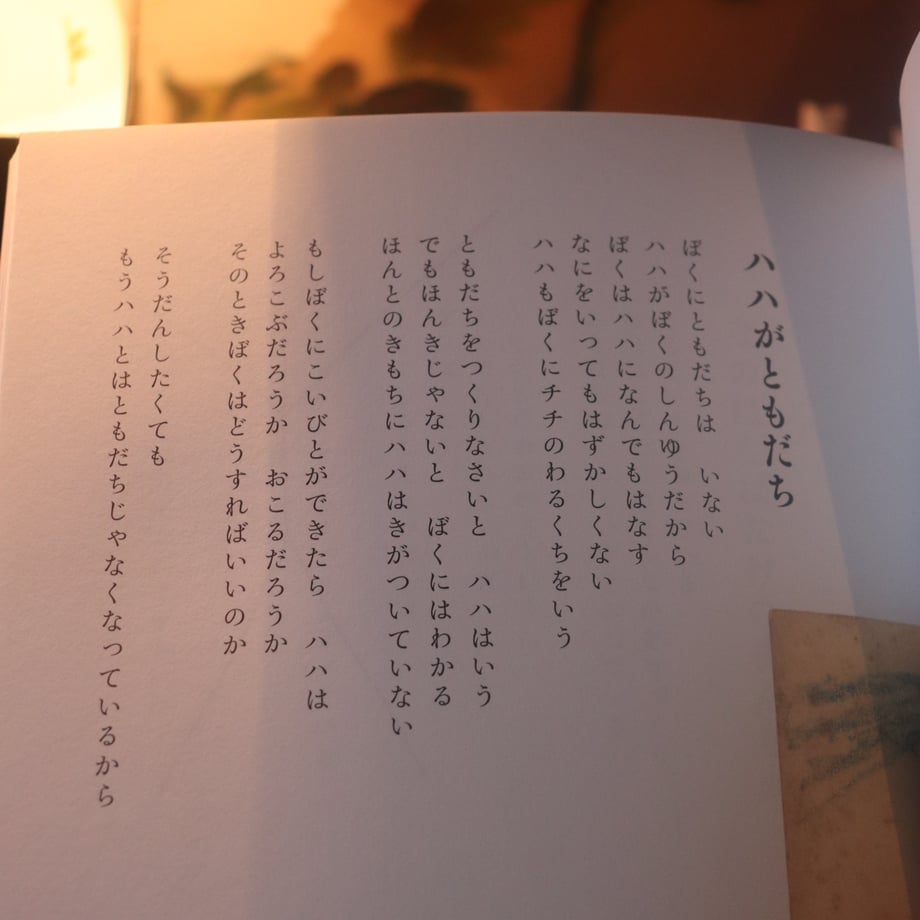 ハハがともだち
ぼくにともだちは　いない
ハハがぼくのしんゆうだから
ぼくはハハになんでもはなす
なにをいってもはずかしくない
ハハもぼくにチチのわるくちをいう
ともだちをつくりなさいと　ハハはいう
でもほんきじゃないと　ぼくにはわかる
ほんとのきもちにハハはきがついていない
もしぼくにこいびとができたら　ハハは
よろこぶだろうか　おこるだろうか
そのときぼくはどうすればいいのか
そうだんしたくても
もうハハとはともだちじゃなくなっているから